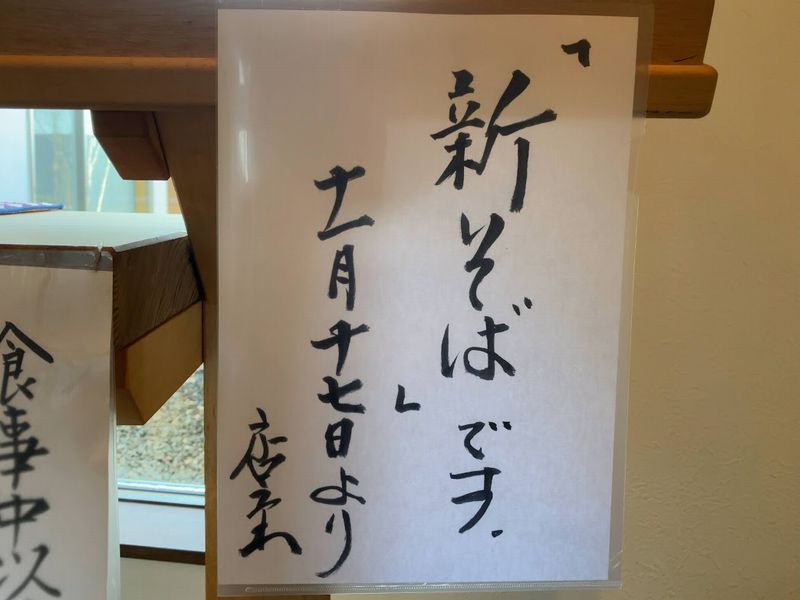 「新そばです。
十一月十七日より」
店主
食事中以